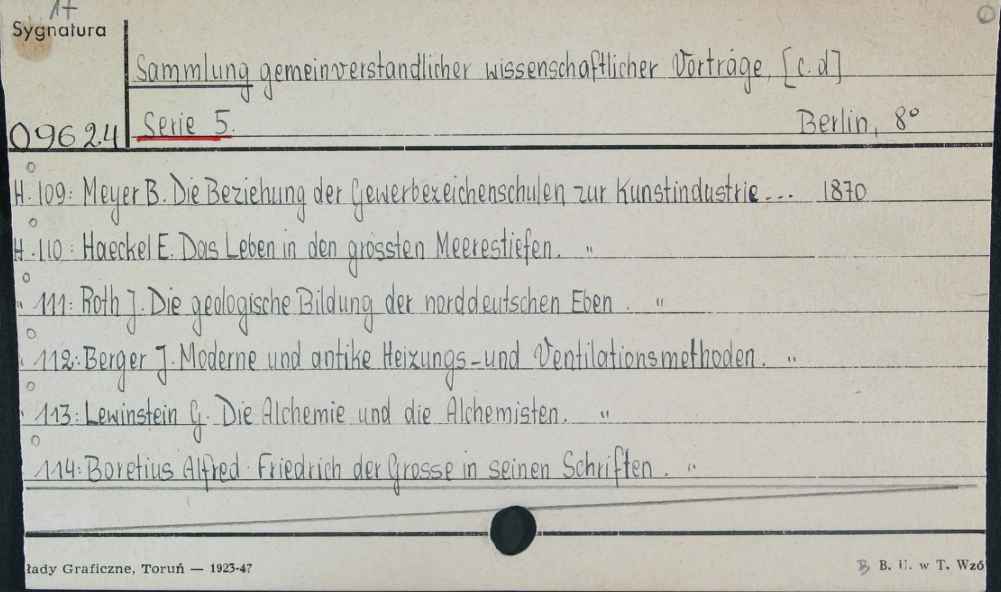 17
Sygnatura
Sammlung gemeinverstandlicher wissenschaftlicher Vorträge, [c.d]
09624 Serie 5. Berlin, 8°
H. 109: Meyer B. Die Beziehung der Gewerbezeichenschulen zur Kunstindustrie... 1870
H. 110: Haeckel E. Das Leben in den grössten Meerestiefen. "
" 111: Roth J. Die geologische Bildung der norddeutschen Eben. "
" 112: Berger J. Moderne und antike Heizungs- und Ventilationsmethoden. "
" 113: Lewinstein G. Die Alchemie und die Alchemisten. "
114: Boretius Alfred. Friedrich der Grosse in seinen Schriften. "
łady Graficzne, Toruń — 1923-47 B B. U. w T. Wzó